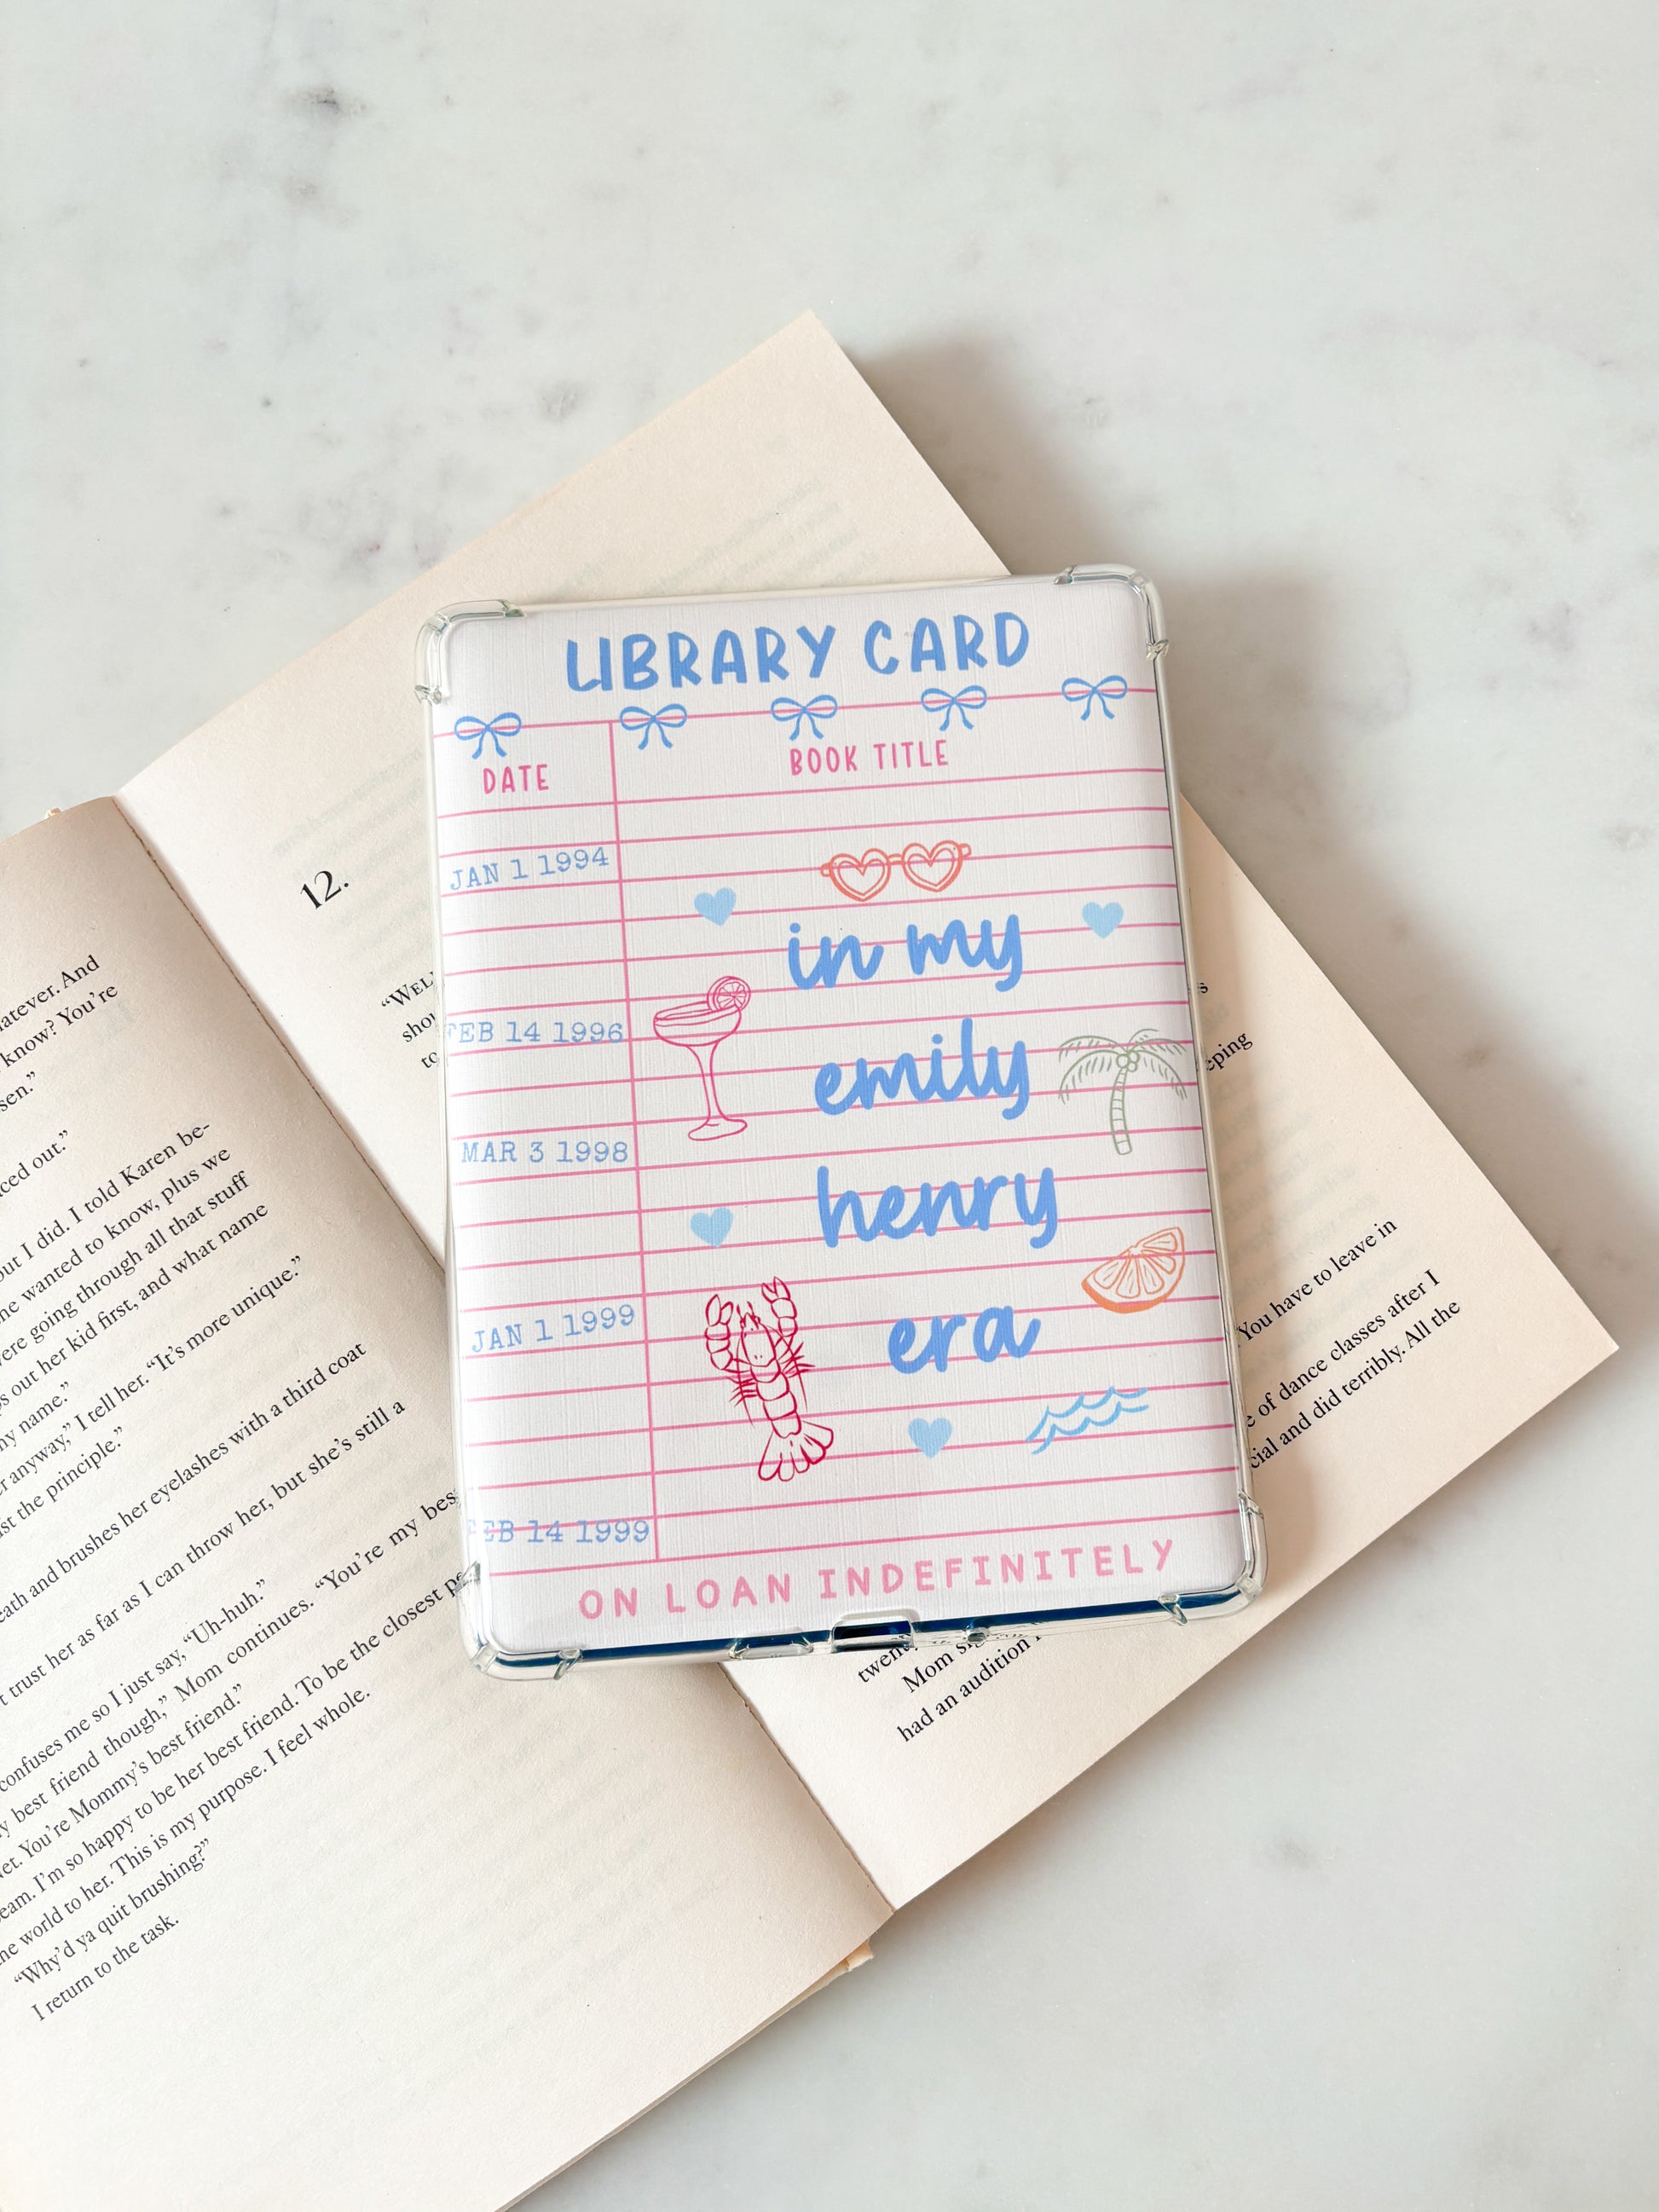 LIBRARY CARD
DATE
BOOK TITLE
JAN 1 1994
FEB 14 1996
MAR 3 1998
JAN 1 1999
FEB 14 1999
in my
emily
henry
era
ON LOAN INDEFINITELY
And
know? You're
out I did. I told Karen be-
wanted to know, plus we
going through all that stuff
out her kid first, and what name
my name."
anyway," I tell her. "It's more unique."
the principle."
and brushes her eyelashes with a third coat
trust her as far as I can throw her, but she's still a
confuses me so I just say, "Uh-huh."
best friend though," Mom continues. "You're my
You're Mommy's best friend."
I'm so happy to be her best friend. To be the closest
world to her. This is my purpose. I feel whole.
"Why'd ya quit brushing?"
I return to the task.
12.
to
You have to leave in
of dance classes after I
and did terribly. All the
Mom
had an audition